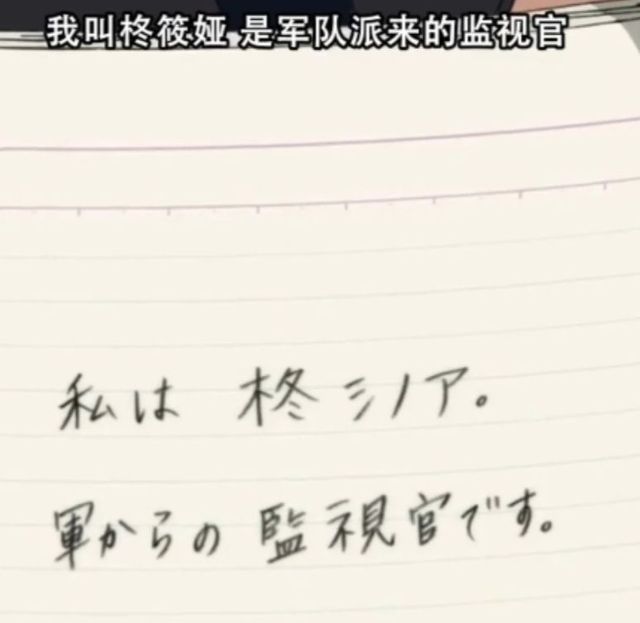 我叫柊筱娅 是军队派来的监视官
私は 柊シノア。
軍からの 監視官です。